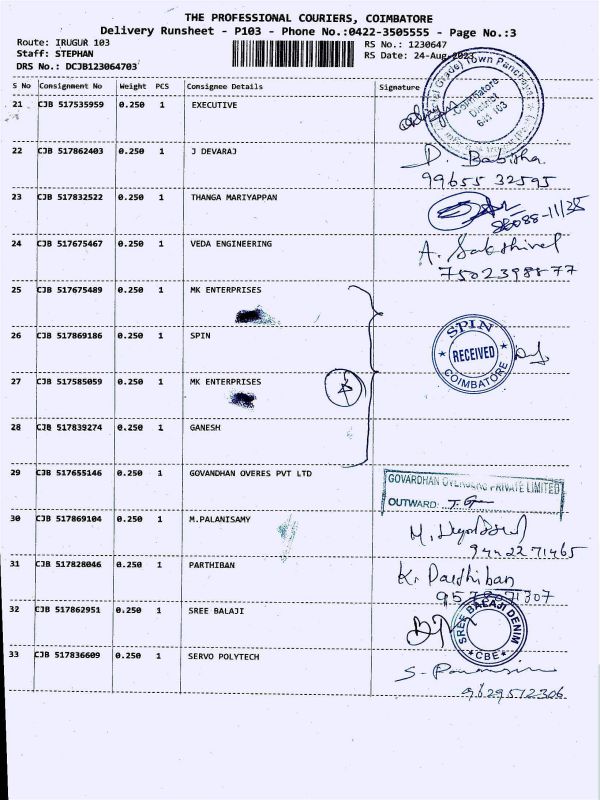 THE PROFESSIONAL COURIERS, COIMBATORE
Delivery Runsheet - P103 - Phone No.:0422-3505555 - Page No.:3
Route: IRUGUR 103 RS No.: 1230647
Staff: STEPHAN RS Date: 24-Aug-2023
DRS No.: DCJB123064703
S No Consignment No Weight PCS Consignee Details Signature
21 CJB 517535959 0.250 1 EXECUTIVE
Town Panchayat
Coimbatore
District
641 103
22 CJB 517862403 0.250 1 J DEVARAJ D. Babisha
99655 32595
23 CJB 517832522 0.250 1 THANGA MARIYAPPAN
24 CJB 517675467 0.250 1 VEDA ENGINEERING A. Sakthivel
7502398877
25 CJB 517675489 0.250 1 MK ENTERPRISES
26 CJB 517869186 0.250 1 SPIN
SPIN
RECEIVED
COIMBATORE
27 CJB 517585059 0.250 1 MK ENTERPRISES
28 CJB 517839274 0.250 1 GANESH
29 CJB 517655146 0.250 1 GOVANDHAN OVERES PVT LTD
GOVARDHAN OVERSEAS PRIVATE LIMITED
OUTWARD
30 CJB 517869104 0.250 1 M.PALANISAMY
94422 71465
31 CJB 517828046 0.250 1 PARTHIBAN K. Parthiban
32 CJB 517862951 0.250 1 SREE BALAJI
SREE BALAJI DENIM
CBE
33 CJB 517836609 0.250 1 SERVO POLYTECH
9629512306